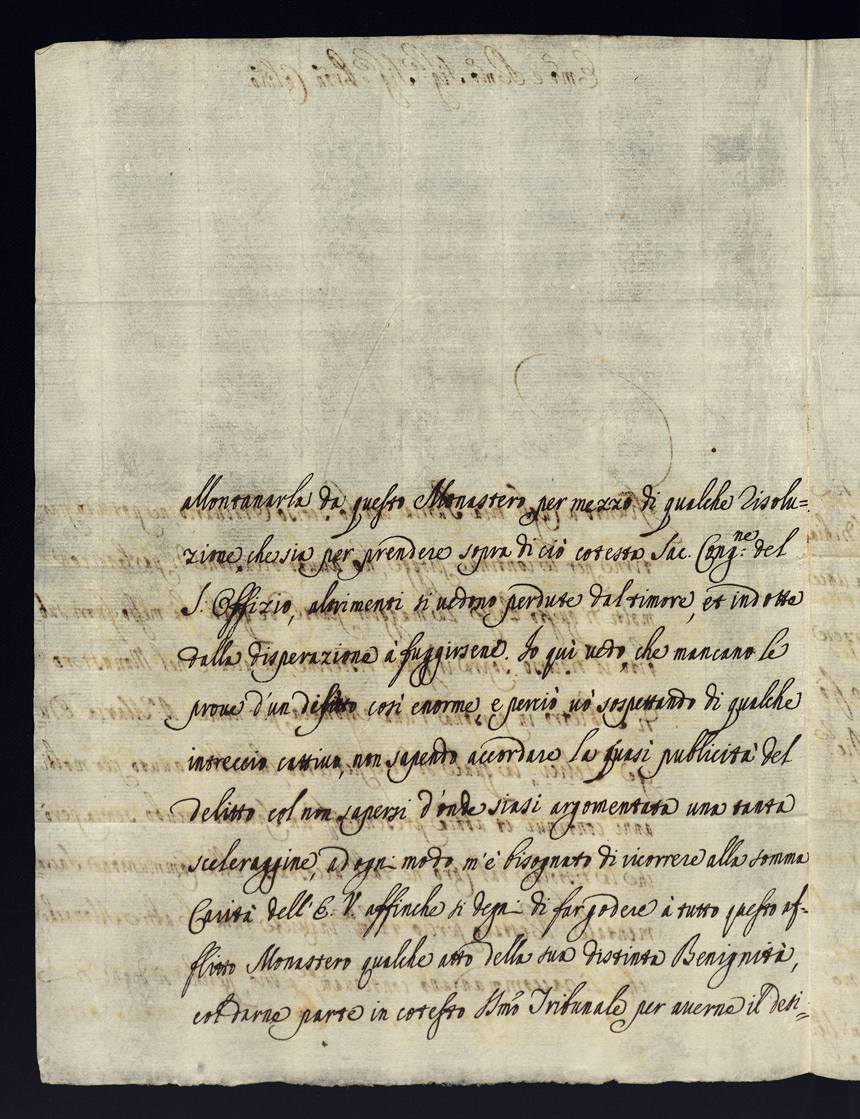 allontanarla da questo Monastero per mezzo di qualche risolu=
zione, che sia per prendere sopra di ciò cotesta Sac. Cong.ne del
S. Offizio, altrimenti si vedono perdute dal timore, et indotte
dalla disperazione à fuggirsene. Io quì vedo, che mancano le
prove d'un delitto così enorme, e perciò vò sospettando di qualche
intreccio cattivo, non sapendo accordare la quasi publicità del
delitto col non sapersi d'onde siasi argomentata una tanta
sceleraggine; ad ogni modo m'è bisognato di ricorrere alla somma
Carità dell'E. V. affinche si degni di far godere à tutto questo af-
flitto Monastero qualche atto della sua distinta Benignità,
col darne parte in cotesto Smo Tribunale per averne il desi=